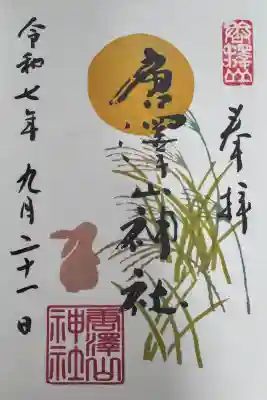 奉拝
唐澤山神社
令和七年九月二十一日
唐澤山
唐澤山
神社